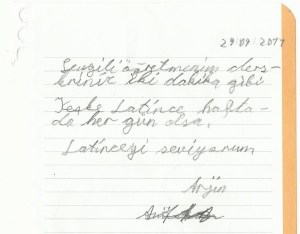 29/09/2017
Sevgili öğretmenim ders-
leriniz iki dakika gibi
Keşke Latince hafta-
da her gün olsa.
Latinceyi seviyorum
Arjin